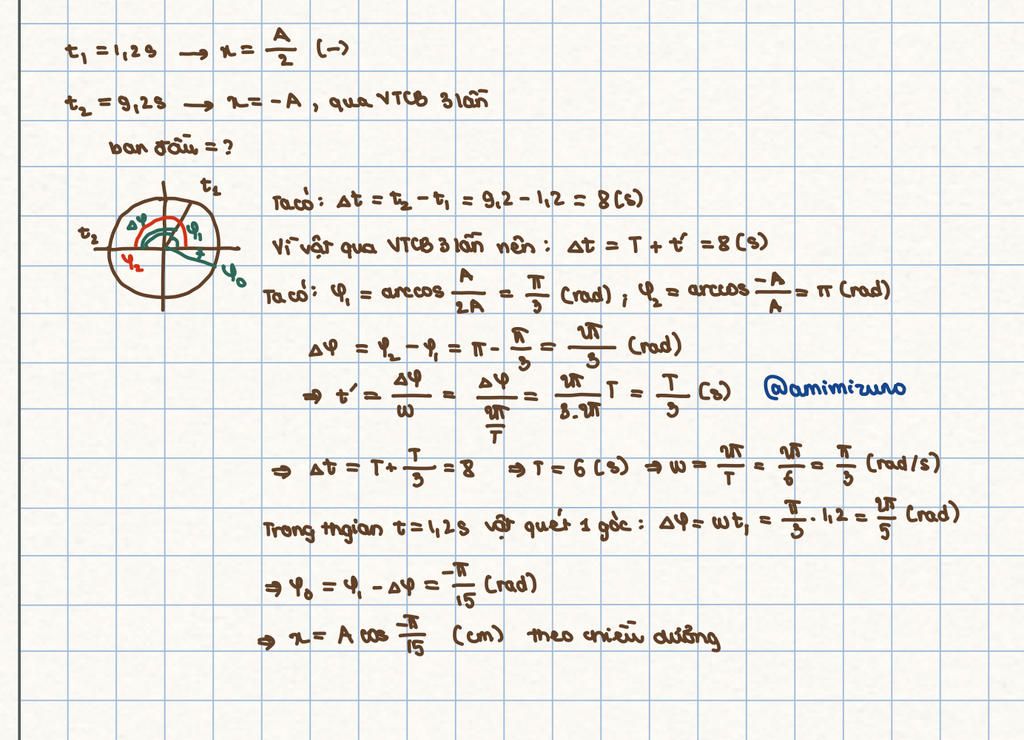 t₁ = 1,2s → x = A/2 (-)
t₂ = 9,2s → x = -A, qua VTCB 3 lần
ban đầu = ?
t₁
Δφ
φ₁
t₂
φ₂
φ₀
Ta có: Δt = t₂ - t₁ = 9,2 - 1,2 = 8 (s)
Vì vật qua VTCB 3 lần nên: Δt = T + t' = 8 (s)
Ta có: φ₁ = arccos A/2A = π/3 (rad); φ₂ = arccos -A/A = π (rad)
Δφ = φ₂ - φ₁ = π - π/3 = 2π/3 (rad)
⇒ t' = Δφ/ω = Δφ/(2π/T) = 2π/3.2π T = T/3 (s)
@amimizuno
⇒ Δt = T + T/3 = 8 ⇒ T = 6 (s) ⇒ ω = 2π/T = 2π/6 = π/3 (rad/s)
Trong thgian t = 1,2s vật quét 1 góc: Δφ = ωt₁ = π/3 . 1,2 = 2π/5 (rad)
⇒ φ₀ = φ₁ - Δφ = -π/15 (rad)
⇒ x = A cos -π/15 (cm) theo chiều dương